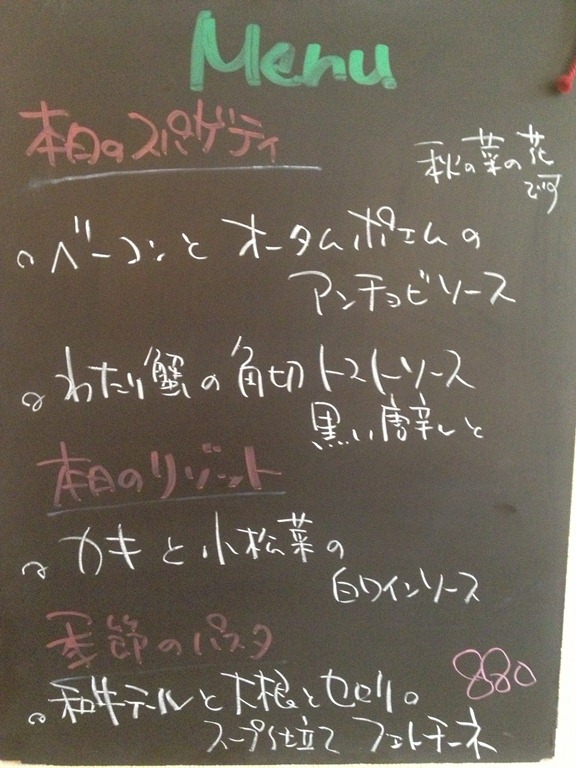 Menu
本日のスパゲティ
秋の菜の花
です
ベーコンと オータムポエムの
アンチョビソース
わたり蟹の角切トマトソース
黒い唐辛しと
本日のリゾット
カキと小松菜の
白ワインソース
季節のパスタ
880
和牛テールと大根とセロリの
スープ仕立て フェトチーネ